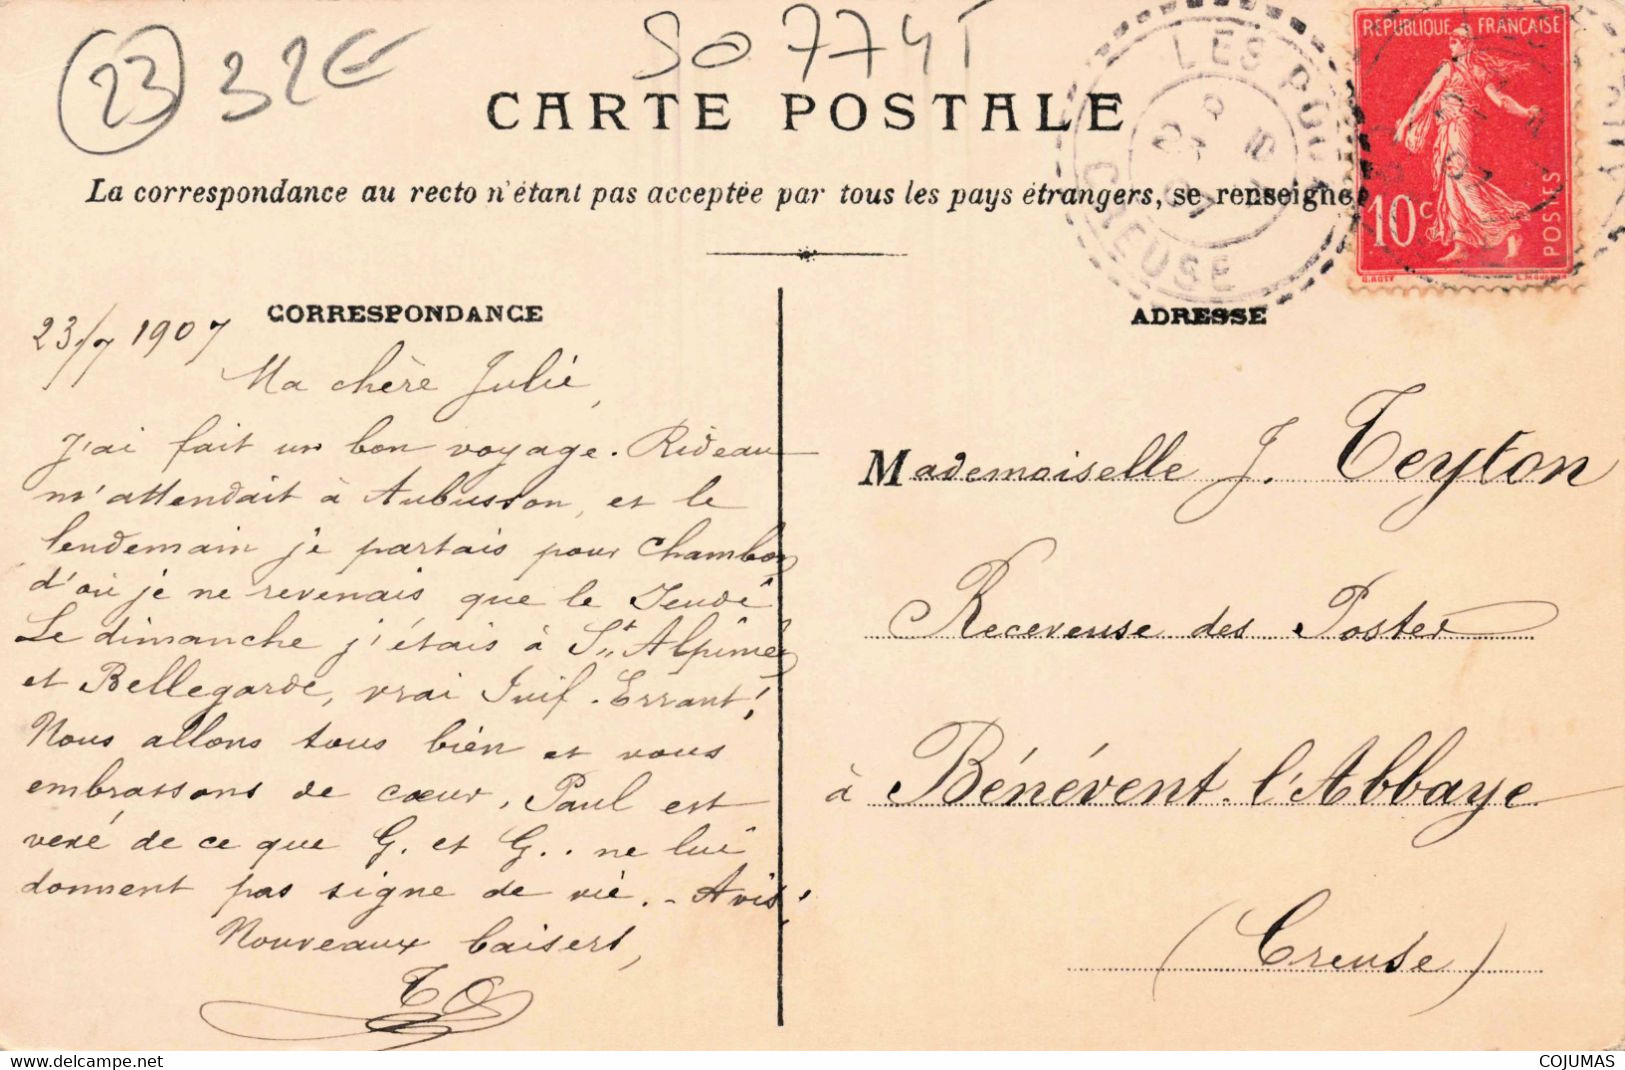 23 32E
SO 774T
RÉPUBLIQUE FRANÇAISE
10c POSTES
LES POU
23 7 07
CREUSE
CARTE POSTALE
La correspondance au recto n'étant pas acceptée par tous les pays étrangers, se renseigne
CORRESPONDANCE
ADRESSE
23/7 1907
Ma chère Julie,
J'ai fait un bon voyage. Rideau
m'attendait à Aubusson, et le
lendemain je partais pour Chambon
d'où je ne revenais que le Jeudi
Le dimanche j'étais à St Alpinien
et Bellegarde, vrai Juif-Errant!
Nous allons tous bien et vous
embrassons de cœur. Paul est
vexé de ce que G. et G.. ne lui
donnent pas signe de vie. - Avis!
Nouveaux baisers,
Mademoiselle J. Teyton
Receveuse des Postes
à Bénévent-l'Abbaye
(Creuse)
delcampe.net
COJUMAS